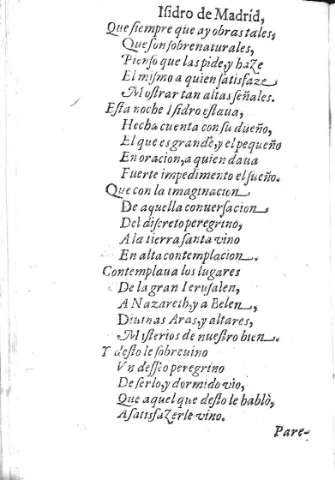 Isidro de Madrid,
Que siempre que ay obras tales,
Que son sobrenaturales,
Pienso que las pide, y haze
El mismo a quien satisfaze
Mostrar tan altas señales.
Esta noche Isidro estaua,
Hecha cuenta con su dueño,
El que es grande, y el pequeño
En oracion, a quien daua
Fuerte impedimento el sueño.
Que con la imaginacion
De aquella conuersacion
Del discreto peregrino,
A la tierra santa vino
En alta contemplacion.
Contemplaua los lugares
De la gran Ierusalen,
A Nazareth, y a Belen,
Diuinas Aras, y altares,
Misterios de nuestro bien.
Y desto le sobreuino
Vn desseo peregrino
De serlo, y dormido vio,
Que aquel que desto le hablò,
A satisfazerle vino.
Pare-